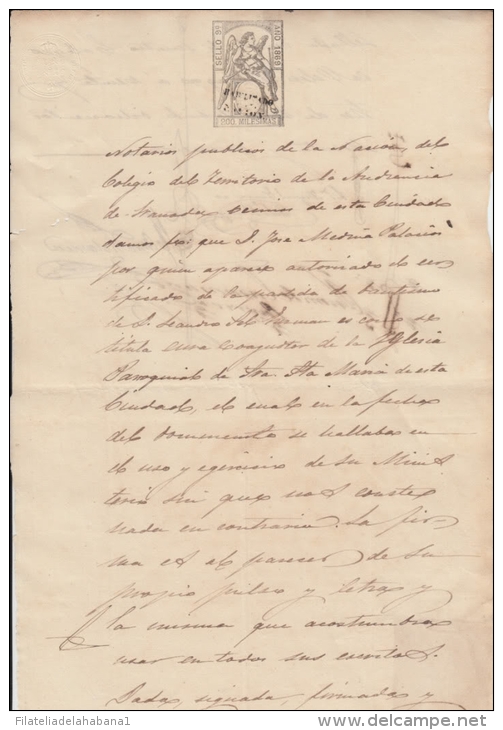 SELLO 9º AÑO 1869
HABILITADO
POR LA NACION
200 MILESIMAS
Notarios publicos de la Nacion, del
Colegio del Territorio de la Audiencia
de Granada, vecinos de esta Ciudad
damos fé: que D. Jose Medina Palacios
por quien aparece autorizado el cer
tificado de la partida de bautismo
de D. Leandro del German es como se
titula Cura Coadjutor de la Yglesia
Parroquial de Sta Maria de esta
Ciudad, el cual en la fecha
del documento se hallaba en
el uso y egercicio de su Minis
terio sin que nos conste
nada en contrario. La fir-
ma es al parecer de su
propio pulso y letra y
la misma que acostumbra
usar en todos sus escritos.
Dada, signada, firmada y
Filateliadelahabana1
www.delcampe.net